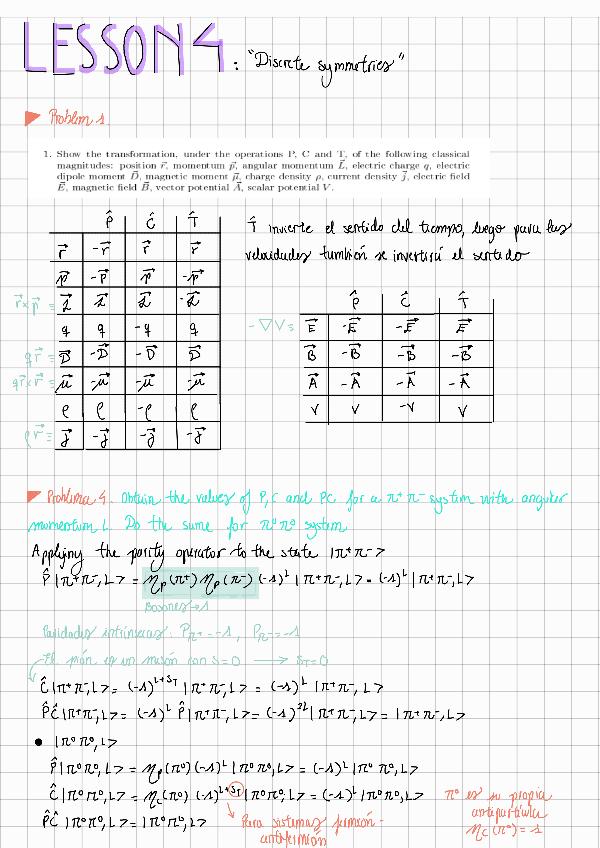 LESSON 4 : "Discrete symmetries"
Problem 1.
1. Show the transformation, under the operations P, C and T, of the following classical
magnitudes: position r⃗, momentum p⃗, angular momentum L⃗, electric charge q, electric
dipole moment D⃗, magnetic moment μ⃗, charge density ρ, current density j⃗, electric field
E⃗, magnetic field B⃗, vector potential A⃗, scalar potential V.
P̂ Ĉ T̂
r⃗ -r⃗ r⃗ r⃗
p⃗ -p⃗ p⃗ -p⃗
r⃗×p⃗ = L⃗ L⃗ L⃗ -L⃗
q q -q q
q r⃗ = D⃗ -D⃗ -D⃗ D⃗
q r⃗×v⃗ = μ⃗ -μ⃗ -μ⃗ -μ⃗
ρ ρ -ρ ρ
ρ v⃗ = j⃗ -j⃗ -j⃗ -j⃗
T̂ invierte el sentido del tiempo, luego para las
velocidades también se invertirá el sentido
P̂ Ĉ T̂
-∇V = E⃗ -E⃗ -E⃗ E⃗
B⃗ -B⃗ -B⃗ -B⃗
A⃗ -A⃗ -A⃗ -A⃗
V V -V V
Problema 4. Obtain the values of P, C and PC for a π+ π- system with angular
momentum L. Do the same for π⁰π⁰ system.
Applying the parity operator to the state |π+π->
P̂ |π+π-, L> = ηp(π+) ηp(π-) (-1)^L |π+π-, L> = (-1)^L |π+π-, L>
Bosones → 1
Paridades intrínsecas: Pπ+ = -1, Pπ- = -1
El pión es un mesón con S=0 → S_T=0
Ĉ|π+π-, L> = (-1)^{L+S_T} |π+π-, L> = (-1)^L |π+π-, L>
P̂Ĉ|π+π-, L> = (-1)^L P̂|π+π-, L> = (-1)^{2L} |π+π-, L> = |π+π-, L>
• |π⁰π⁰, L>
P̂|π⁰π⁰, L> = ηp(π⁰) (-1)^L |π⁰π⁰, L> = (-1)^L |π⁰π⁰, L>
Ĉ|π⁰π⁰, L> = ηc(π⁰) (-1)^{L+S_T} |π⁰π⁰, L> = (-1)^L |π⁰π⁰, L>
P̂Ĉ |π⁰π⁰, L> = |π⁰π⁰, L>
Para sistemas fermión-
antifermión
π⁰ es su propia
antipartícula
ηc(π⁰) = 1